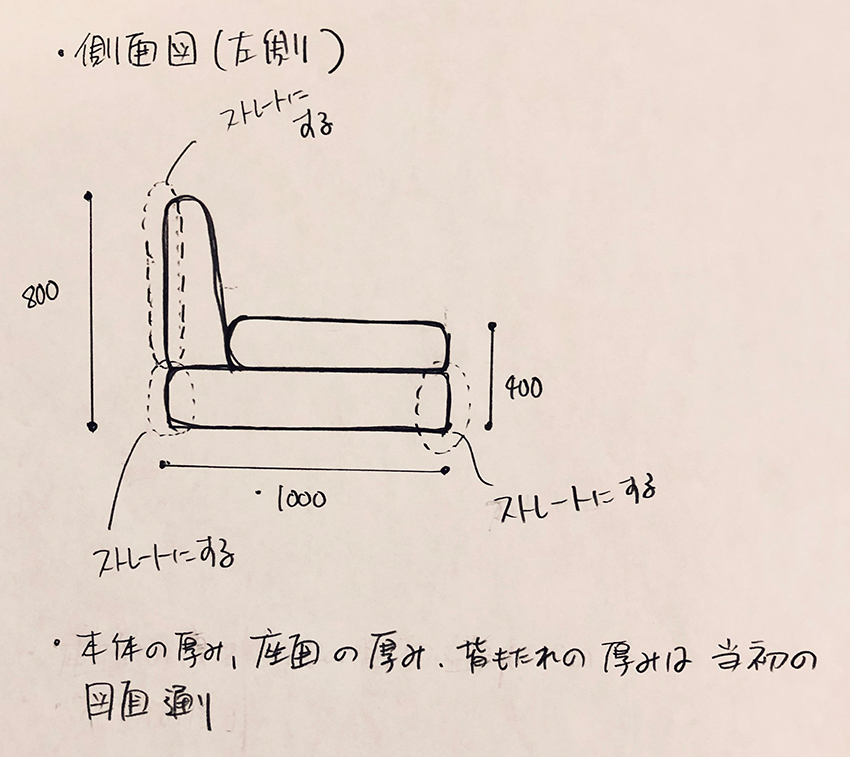 ・側面図(左側)
ストレートに
する
800
400
・1000
ストレートにする
ストレートにする
・本体の厚み、座面の厚み、背もたれの厚みは 当初の
図面通り